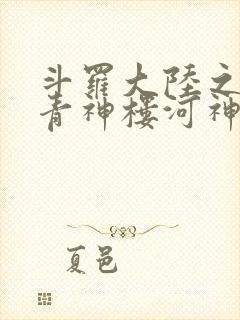 斗羅大陸之
青神樓河神
夏邑